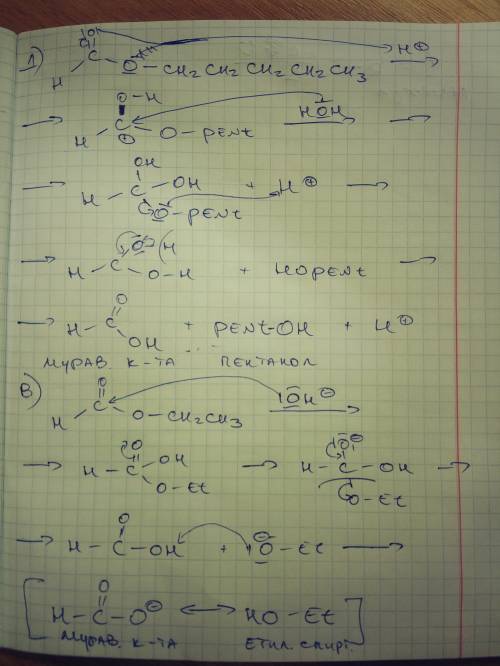 1) H C O O – CH2 CH2 CH2 CH2 CH3 H⊕
O – H
H C ⊕ O – PENt HOH
OH
H – C – OH + H⊕
O – PENt
O H
H – C O – H + HOPENt
O
H – C OH + PENt-OH + H⊕
МУРАВ. К-ТА ПЕНТАНОЛ
O
B) H C O – CH2CH3 OH⊖
O O⊖
H – C OH H – C – OH
O – Et O – Et
O
H – C – OH + O⊖ – Et
O
[ H – C – O⊖ ↔ HO – Et ]
МУРАВ. К-ТА ЕТИЛ СПИРТ.